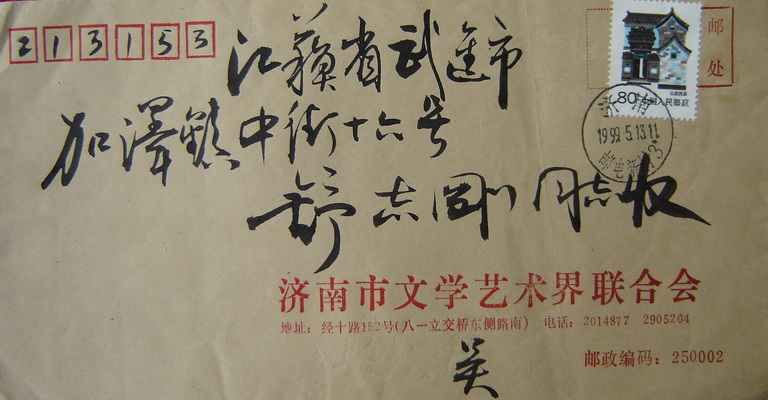 213153
邮
处
江蘇省武進市
80 中国人民邮政
山西民居
1999.5.13.11
加澤鎮中街十六号
舒志剛同志收
济南市文学艺术界联合会
地址：经十路152号(八一立交桥东侧路南) 电话：2014877 2905204
邮政编码：250002
吴